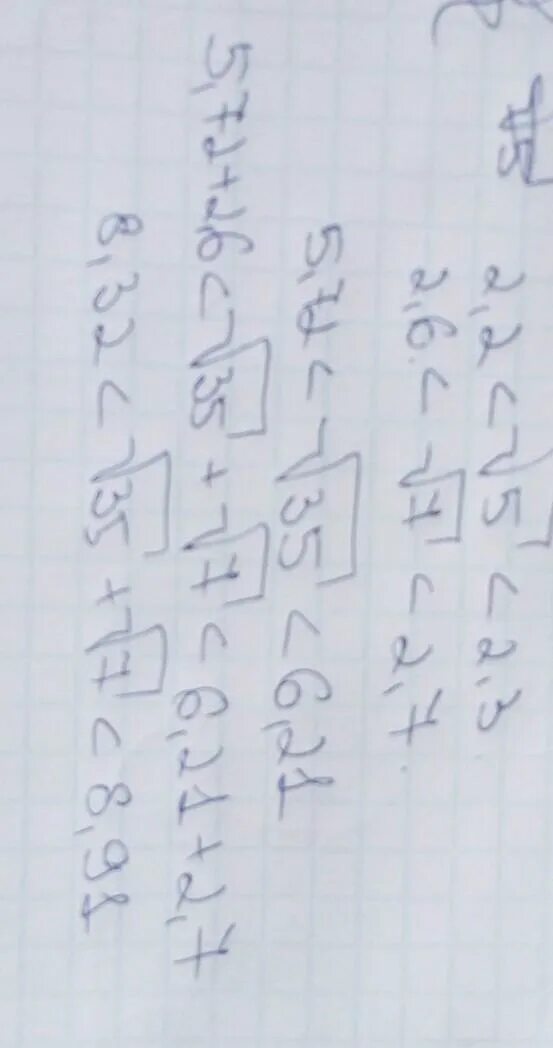 √5
2,2 < √5 < 2,3
2,6 < √7 < 2,7
5,72 < √35 < 6,21
5,72+2,6 < √35 + √7 < 6,21+2,7
8,32 < √35 + √7 < 8,91